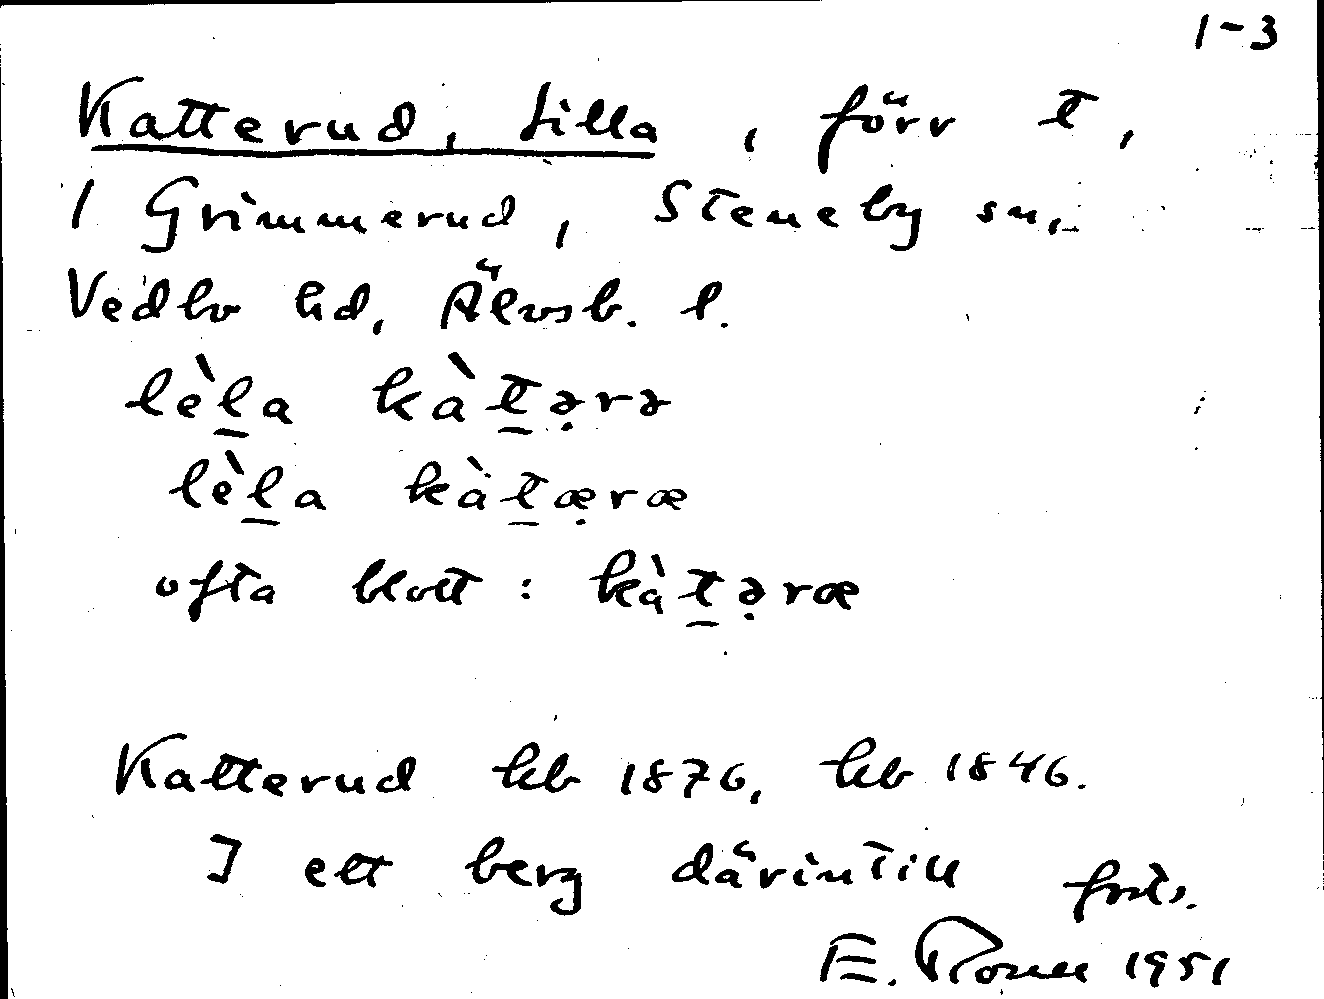 1-3
Katterud, Lilla, förr t,
1 Grimmerud, Steneby sn,
Vedbo hd, Älvsb. l.
lèl̠a kàt̠ə̣rə
lèl̠a kàt̠æ̣ræ
ofta blott: kàt̠ə̣ræ
Katterud kb 1876, kb 1846.
I ett berg därintill forts.
E. 1951